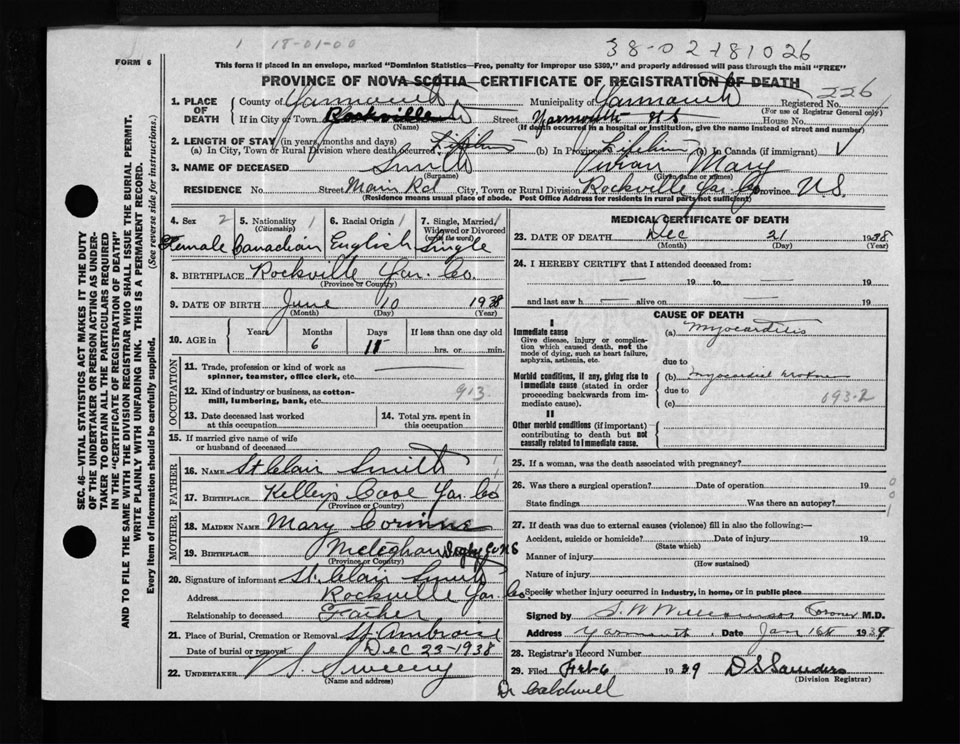 1 18-01-00
38-02781026
FORM 6
This form if placed in an envelope, marked "Dominion Statistics—Free, penalty for improper use $300," and properly addressed will pass through the mail "FREE"
PROVINCE OF NOVA SCOTIA—CERTIFICATE OF REGISTRATION OF DEATH
226
1. PLACE OF DEATH
County of Yarmouth Municipality of Yarmouth Registered No.
(For use of Registrar General only)
If in City or Town Rockville Street Yarmouth NS House No.
(Name) (If death occurred in a hospital or institution, give the name instead of street and number)
2. LENGTH OF STAY (in years, months and days)
(a) In City, Town or Rural Division where death occurred Lifetime (b) In Province Lifetime (c) In Canada (if immigrant)
3. NAME OF DECEASED Smith Vivian Mary
(Surname) (Given name or names)
RESIDENCE No. Street Main Rd City, Town or Rural Division Rockville Yar. Co. Province N.S.
(Residence means usual place of abode. Post Office Address for residents in rural parts not sufficient)
4. Sex 2 5. Nationality 1 6. Racial Origin 1 7. Single, Married, 1
(Citizenship) Widowed or Divorced
(write the word)
Female Canadian English Single
8. BIRTHPLACE Rockville Yar. Co.
(Province or Country)
9. DATE OF BIRTH June 10 1938
(Month) (Day) (Year)
10. AGE in
Years Months Days If less than one day old
6 11 hrs. or min.
OCCUPATION
11. Trade, profession or kind of work as
spinner, teamster, office clerk, etc.
12. Kind of industry or business, as cotton-
mill, lumbering, bank, etc. 913
13. Date deceased last worked
at this occupation
14. Total yrs. spent in
this occupation
15. If married give name of wife
or husband of deceased
FATHER
16. NAME St Clair Smith
17. BIRTHPLACE Kelleys Cove Yar. Co
(Province or Country)
MOTHER
18. MAIDEN NAME Mary Corinne
19. BIRTHPLACE Meteghan Digby Co NS
(Province or Country)
20. Signature of informant St. Clair Smith
Address Rockville Yar. Co.
Relationship to deceased Father
21. Place of Burial, Cremation or Removal St Ambroise
Date of burial or removal Dec 23-1938
22. UNDERTAKER V S. Sweeny
(Name and address)
MEDICAL CERTIFICATE OF DEATH
23. DATE OF DEATH Dec 21 1938
(Month) (Day) (Year)
24. I HEREBY CERTIFY that I attended deceased from:
19 to 19
and last saw h alive on 19
CAUSE OF DEATH
I
Immediate cause
Give disease, injury or complication which caused death, not the mode of dying, such as heart failure, asphyxia, asthenia, etc.
(a) Myocarditis
due to
Morbid conditions, if any, giving rise to immediate cause (stated in order proceeding backwards from immediate cause).
(b) myocardial
due to
(c) 093-2
II
Other morbid conditions (if important) contributing to death but not causally related to immediate cause.
25. If a woman, was the death associated with pregnancy?
26. Was there a surgical operation? Date of operation 19
State findings Was there an autopsy?
001
27. If death was due to external causes (violence) fill in also the following:—
Accident, suicide or homicide? Date of injury 19
(State which)
Manner of injury
(How sustained)
Nature of injury
Specify whether injury occurred in industry, in home, or in public place
Signed by S. W Williamson Coroner M.D.
Address Yarmouth Date Jan 16th 1939
28. Registrar's Record Number
29. Filed Feb 6 1939 D S Saunders
(Division Registrar)
Dr Caldwell
SEC. 46—VITAL STATISTICS ACT MAKES IT THE DUTY
OF THE UNDERTAKER OR PERSON ACTING AS UNDER-
TAKER TO OBTAIN ALL THE PARTICULARS REQUIRED
IN THE "CERTIFICATE OF REGISTRATION OF DEATH"
AND TO FILE THE SAME WITH THE DIVISION REGISTRAR WHO SHALL ISSUE THE BURIAL PERMIT.
WRITE PLAINLY WITH UNFADING INK. THIS IS A PERMANENT RECORD.
Every item of information should be carefully supplied. (See reverse side for instructions.)